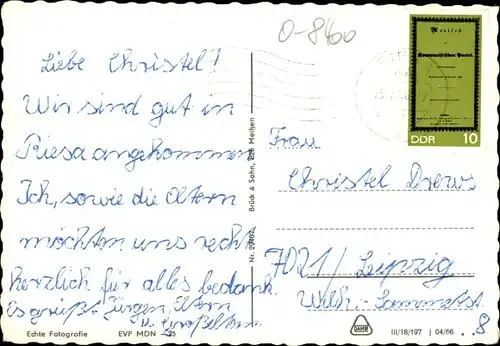 O-8400
Liebe Christel!
Wir sind gut in
Riesa angekommen
Ich, sowie die Eltern
möchten uns recht
herzlich für alles bedank.
Es grüßt Jürgen, Eltern
u. Großeltern
Echte Fotografie EVP MDN -,25
Brück & Sohn, 825 Meißen
Manifest
Kommunistischen Partei.
DDR 10
Frau
Christel Drews
7021/Leipzig
Wilh.-Sammetstr.
8
III/18/197 J 04/66